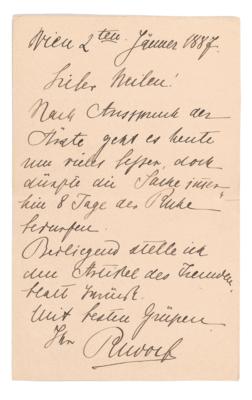 Wien 2ten Jänner 1887.
Lieber Weilen!
Nach Ausspruch der
Ärzte geht es heute
um vieles besser, doch
dürfte die Sache immer-
hin 8 Tage der Ruhe
bedürfen.
Beiliegend stelle ich
den Artikel des Fremden-
blatt zurück.
Mit besten Grüßen
Ihr
Rudolf